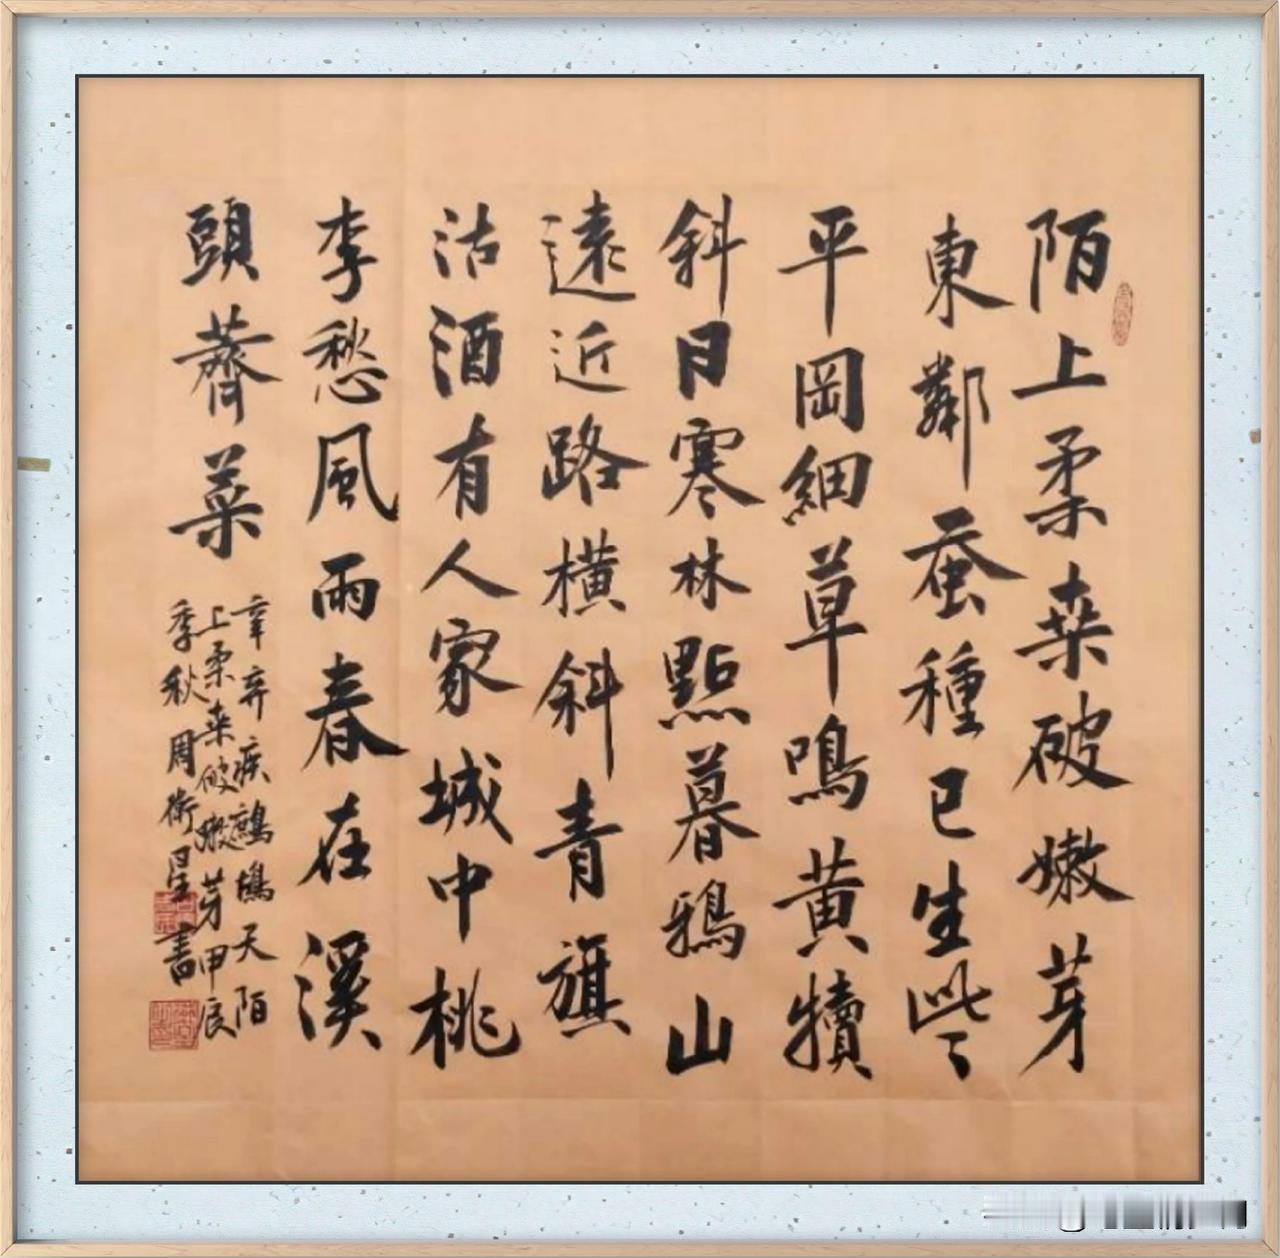 陌上柔桒破嫩芽
東鄰蚕種已生些
平岡細草鳴黃犢
斜日寒林點暮鴉山
遠近路橫斜青旗
沽酒有人家城中桃
李愁風雨春在溪
頭薺菜
辛弃疾鷓鴣天陌
上柔桒破嫩芽甲辰
季秋周衛星書